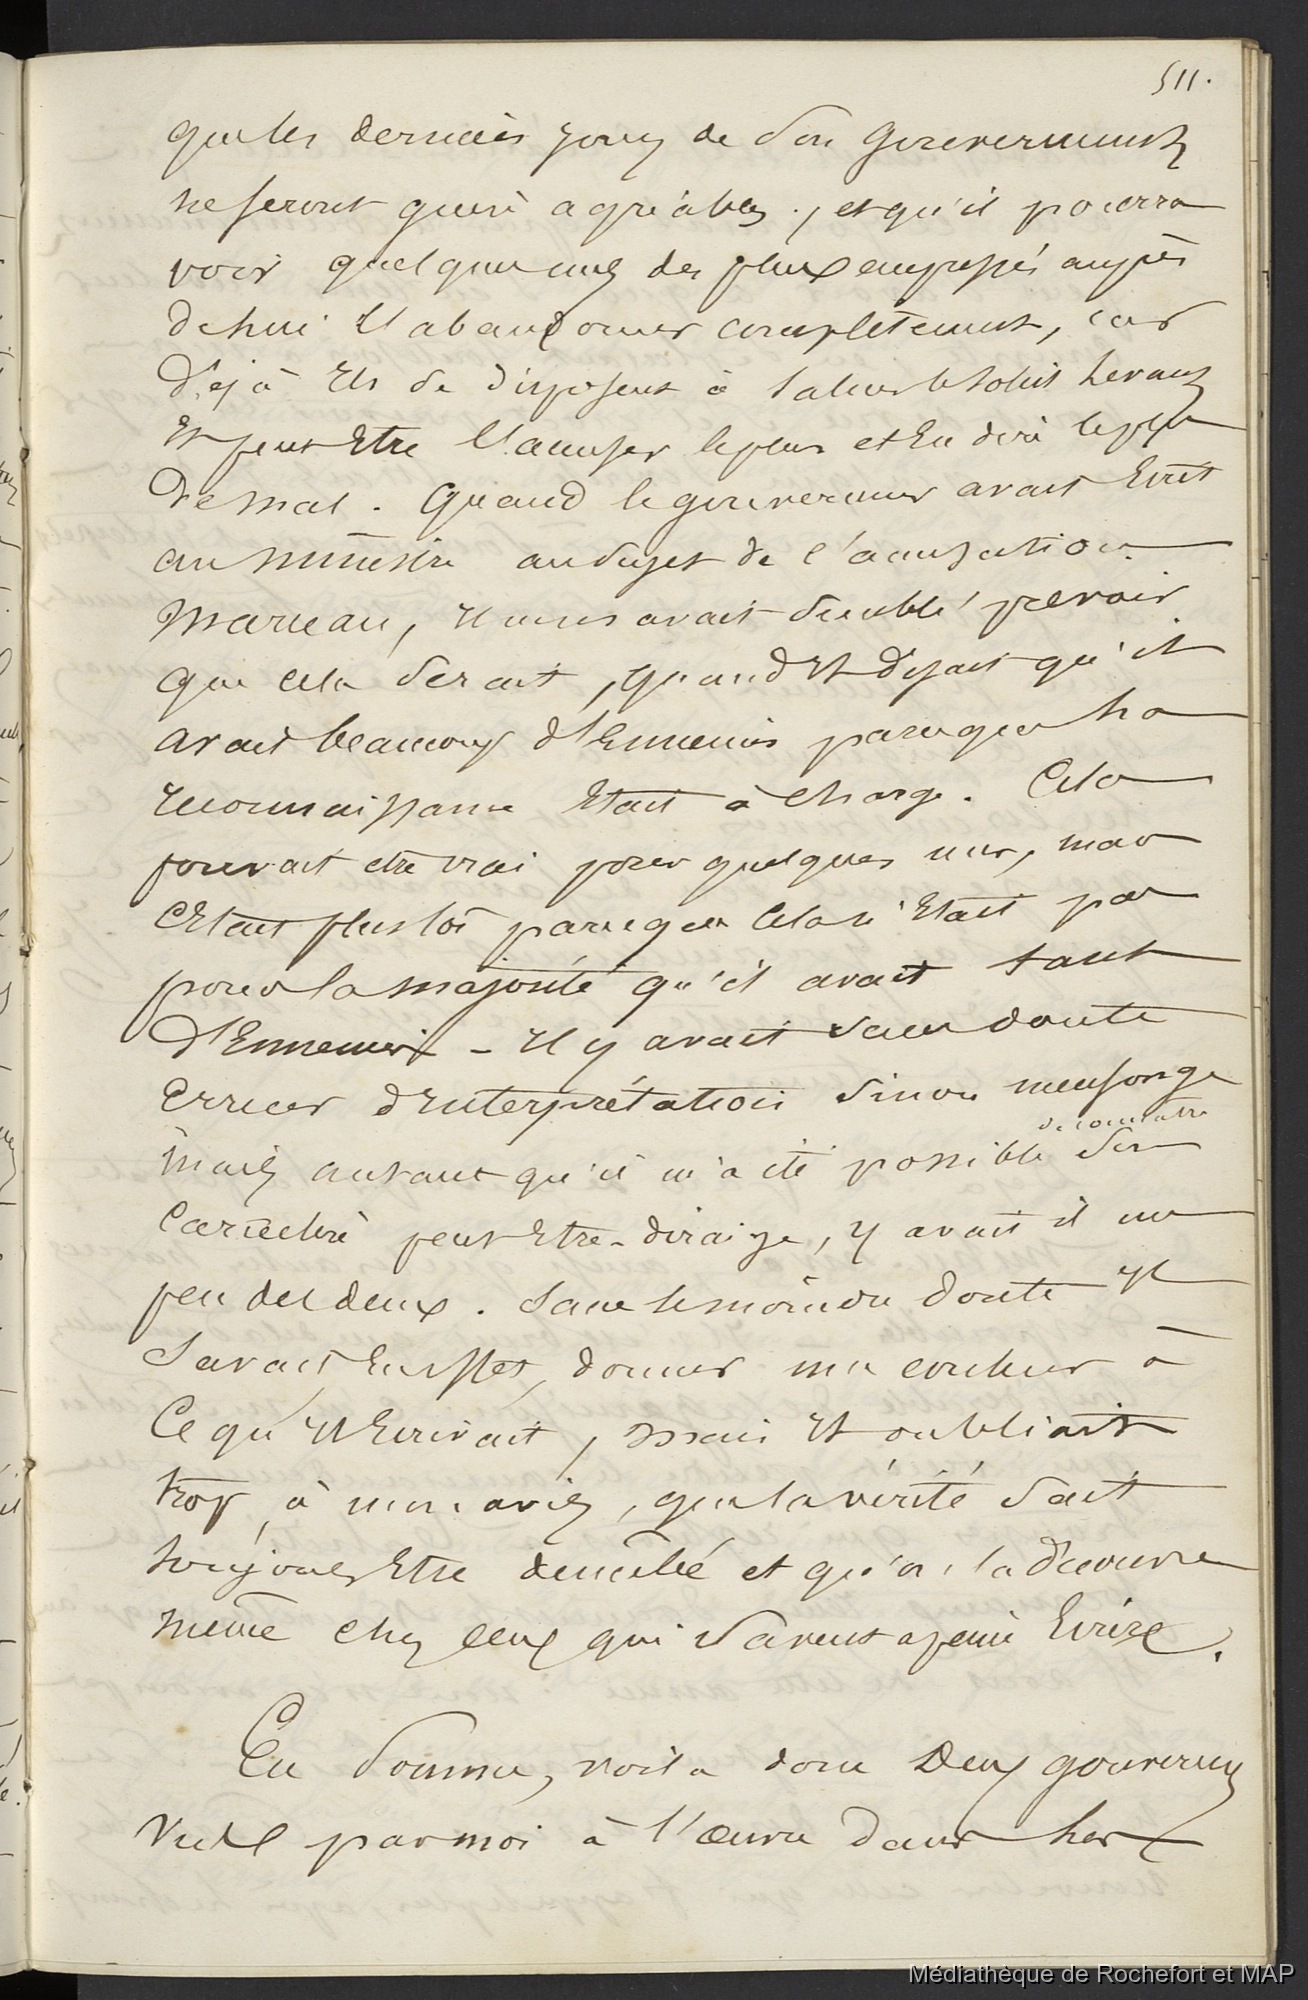 511.
que les derniers jours de son Gouvernement
ne seront guère agréables, et qu'il pourra
voir quelques uns des plus empressés auprès
de lui l'abandonner complètement, car
déjà ils se disposent à saluer le soleil levant
Et peut Etre l'accuser le plus et En dire le plus
De mal. Quand le gouverneur avait Ecrit
au Ministre au sujet de l'accusation
Marceau, il avait semblé prévoir
que cela serait, quand Il disait qu'il
avait beaucoup d'Ennemis parce que la
reconnaissance Etait à charge. Cela
pouvait être vrai pour quelques uns, mais
c'Etait plustôt parceque Cela n'Etait pas
pour la majorité qu'il avait tant
d'Ennemis - Il y avait sans doute
Erreur d'interprétation sinon mensonge
de connaitre
mais autant qu'il m'a été possible son
Caractère peut Etre dirai je, y avait il un
peu des deux. Sans le moindre doute il
Savait, En effet, donner une couleur à
Ce qu'Il Ecrivait, mais Il oubliait
trop, à mon avis, que la vérité sait
toujours Etre démêlée et qu'on la découvre
même chez ceux qui savent a peine Ecrire.
En somme, voila donc Deux gouverneurs
vus par moi à l'œuvre dans les
Médiathèque de Rochefort et MAP